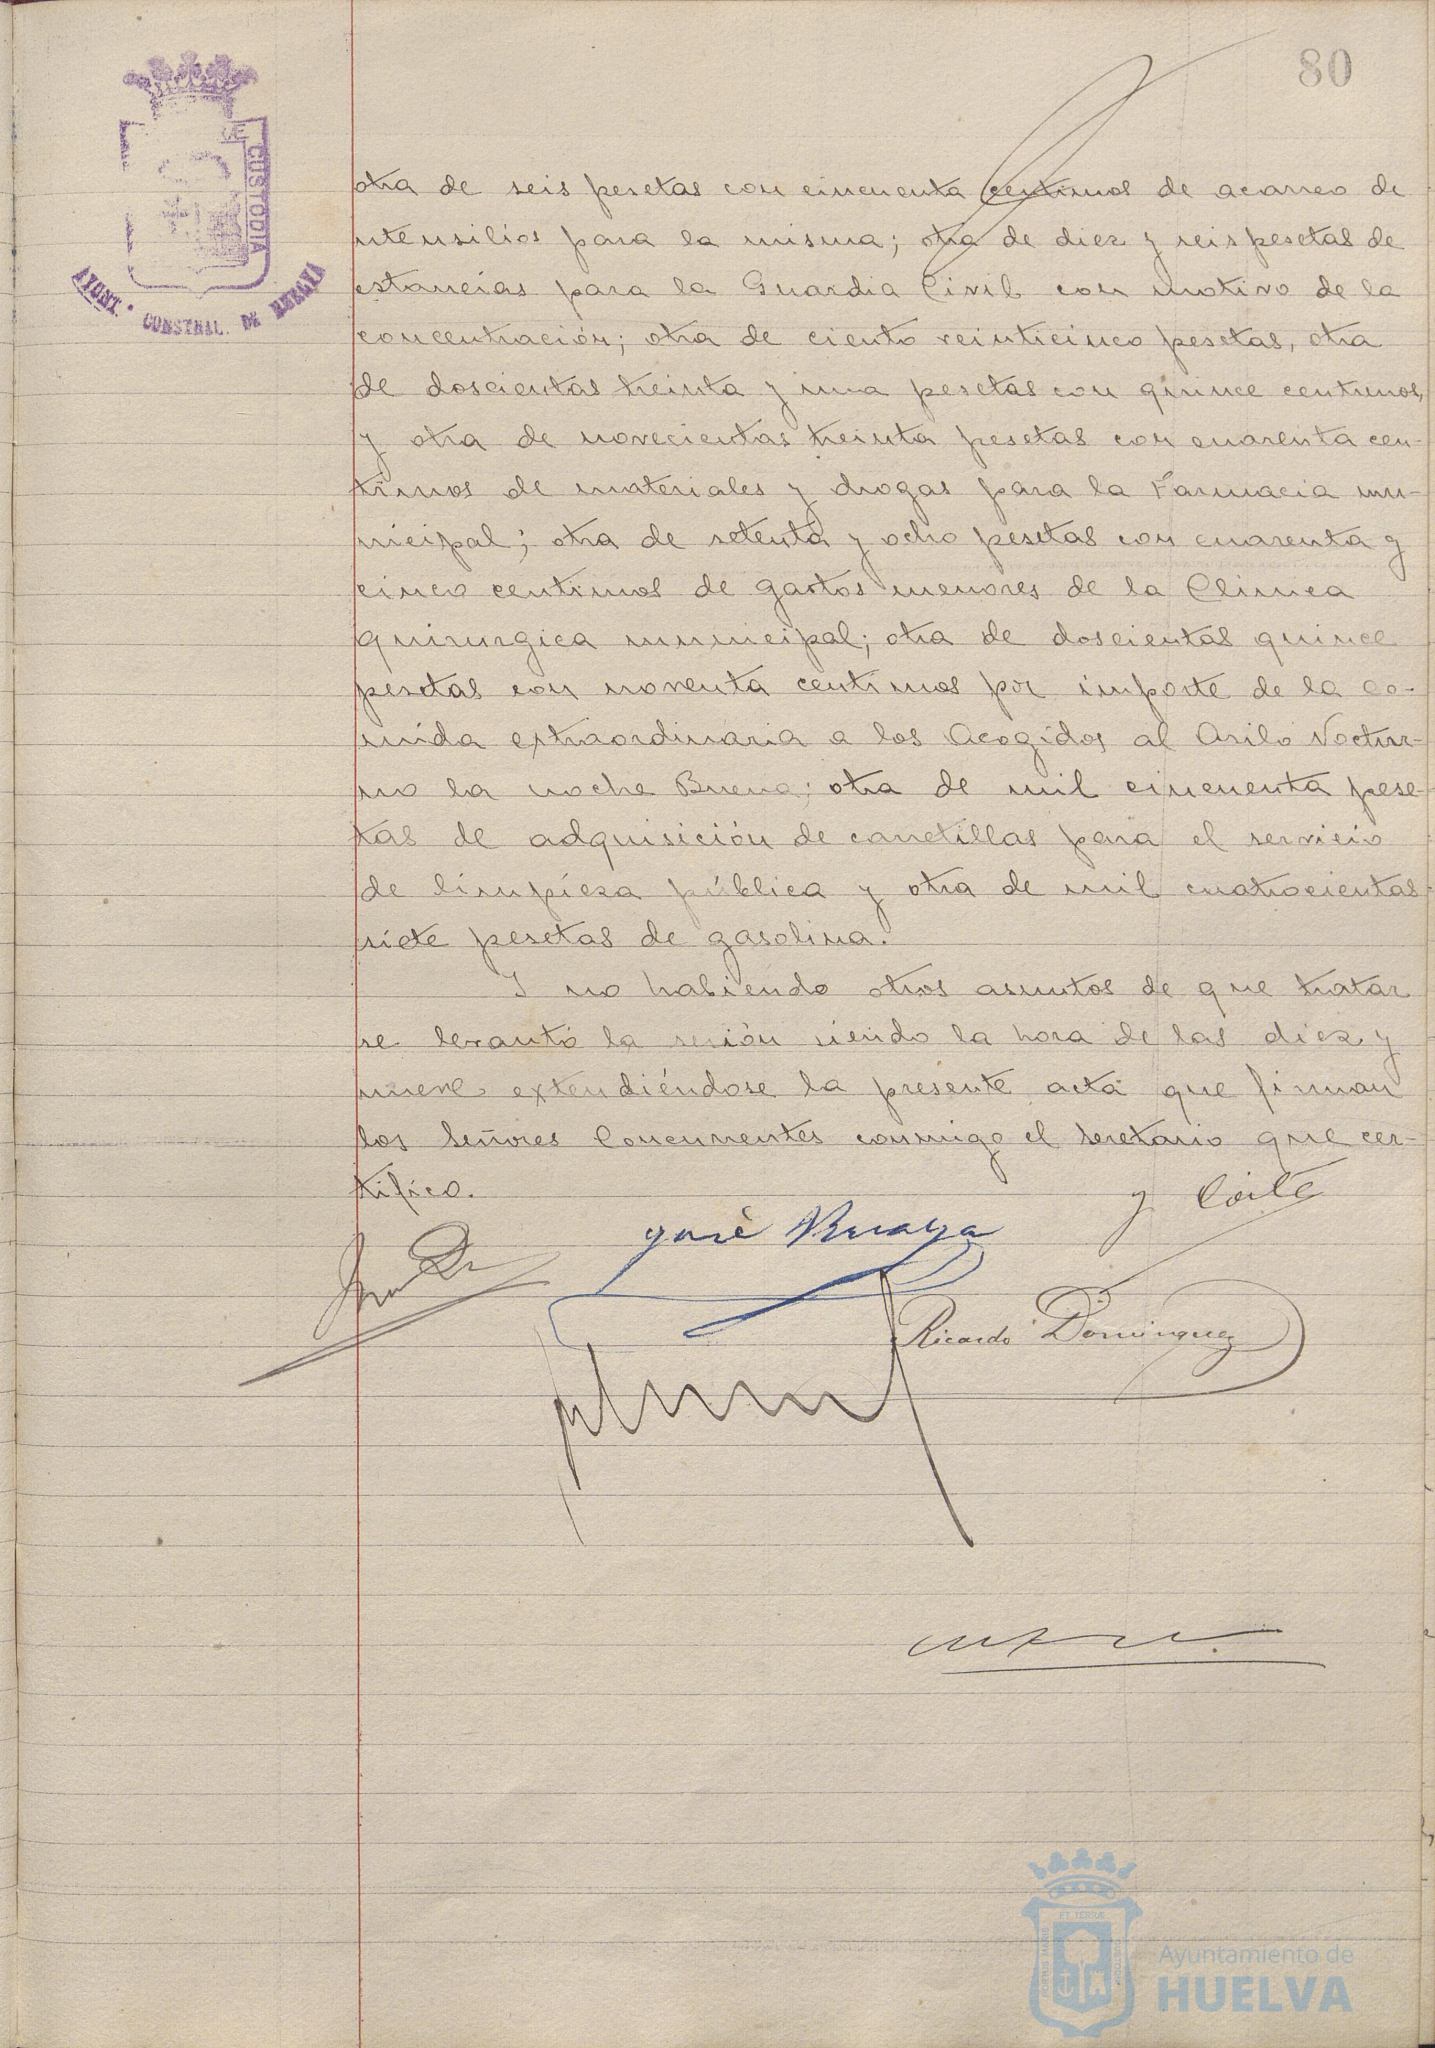 80
CUSTODIA
AYUNT. CONSTNAL. DE HUELVA
otra de seis pesetas con cincuenta centimos de acarreo de
utensilios para la misma; otra de diez y seis pesetas de
estancias para la Guardia Civil con motivo de la
concentración; otra de ciento veinticinco pesetas, otra
de doscientas treinta y una pesetas con quince centimos,
y otra de novecientas treinta pesetas con cuarenta cen-
timos de materiales y drogas para la Farmacia mu-
nicipal; otra de setenta y ocho pesetas con cuarenta y
cinco centimos de gastos menores de la Clinica
quirurgica municipal; otra de doscientas quince
pesetas con noventa centimos por importe de la co-
mida extraordinaria a los Acogidos al Asilo Noctur-
no la noche Buena; otra de mil cincuenta pese-
tas de adquisición de carretillas para el servicio
de limpieza pública y otra de mil cuatrocientas
siete pesetas de gasolina.
Y no habiendo otros asuntos de que tratar
se levantó la sesión siendo la hora de las diez y
nueve extendiéndose la presente acta que firman
los Señores Concurrentes conmigo el Secretario que cer-
tifico.
y Corte
José
Ricardo Dominguez
Ayuntamiento de
HUELVA